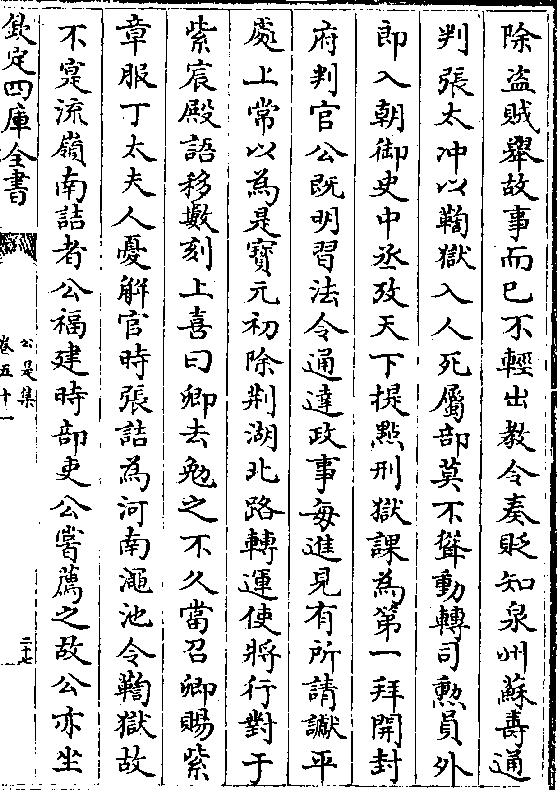 除盜賊舉故事而已不輕出教令奏貶知泉州蘇壽通
判張太冲以鞫獄入人死屬部莫不聳動轉司勲員外
郎入朝御史中丞攷天下提㸃刑獄課為第一拜開封
府判官公既明習法令通達政事每進見有所請讞平
處上常以為是寶元初除荆湖北路轉運使將行對于
紫宸殿語移數刻上喜曰卿去勉之不久當召卿賜紫
章服丁太夫人憂解官時張詰為河南澠池令鞫獄故
不寔流嶺南詰者公福建時部吏公嘗薦之故公亦坐
欽定四庫全書
公是集
卷五十一
二十七